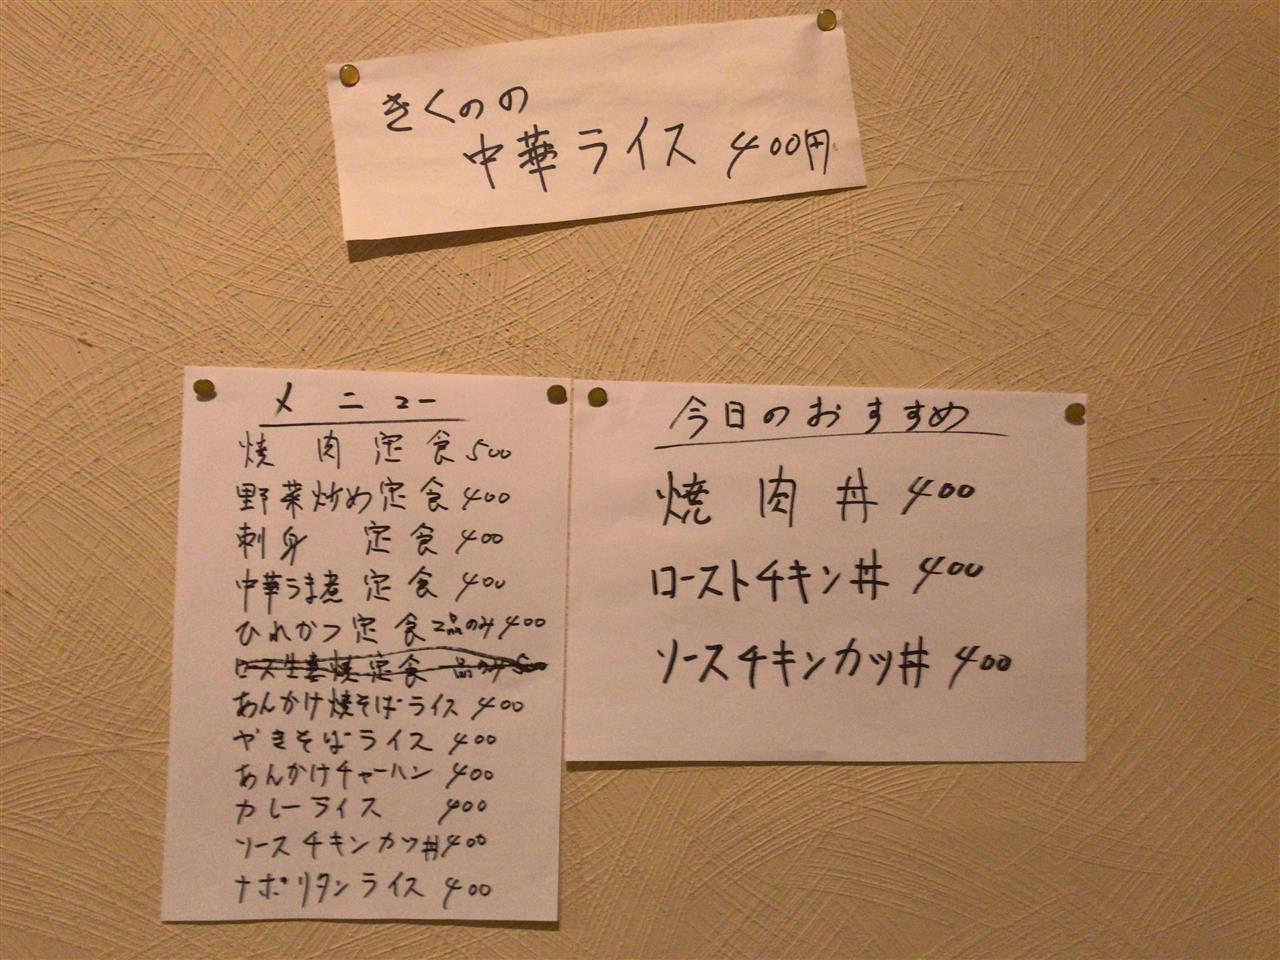 きくのの
中華ライス 400円
メニュー
焼肉定食 500
野菜炒め定食 400
刺身 定食 400
中華うま煮 定食 400
ひれかつ定食 二品のみ 400
ロース生姜焼定食 品のみ 500
あんかけ焼そばライス 400
やきそばライス 400
あんかけチャーハン 400
カレーライス 400
ソースチキンカツ丼 400
ナポリタンライス 400
今日のおすすめ
焼肉丼 400
ローストチキン丼 400
ソースチキンカツ丼 400